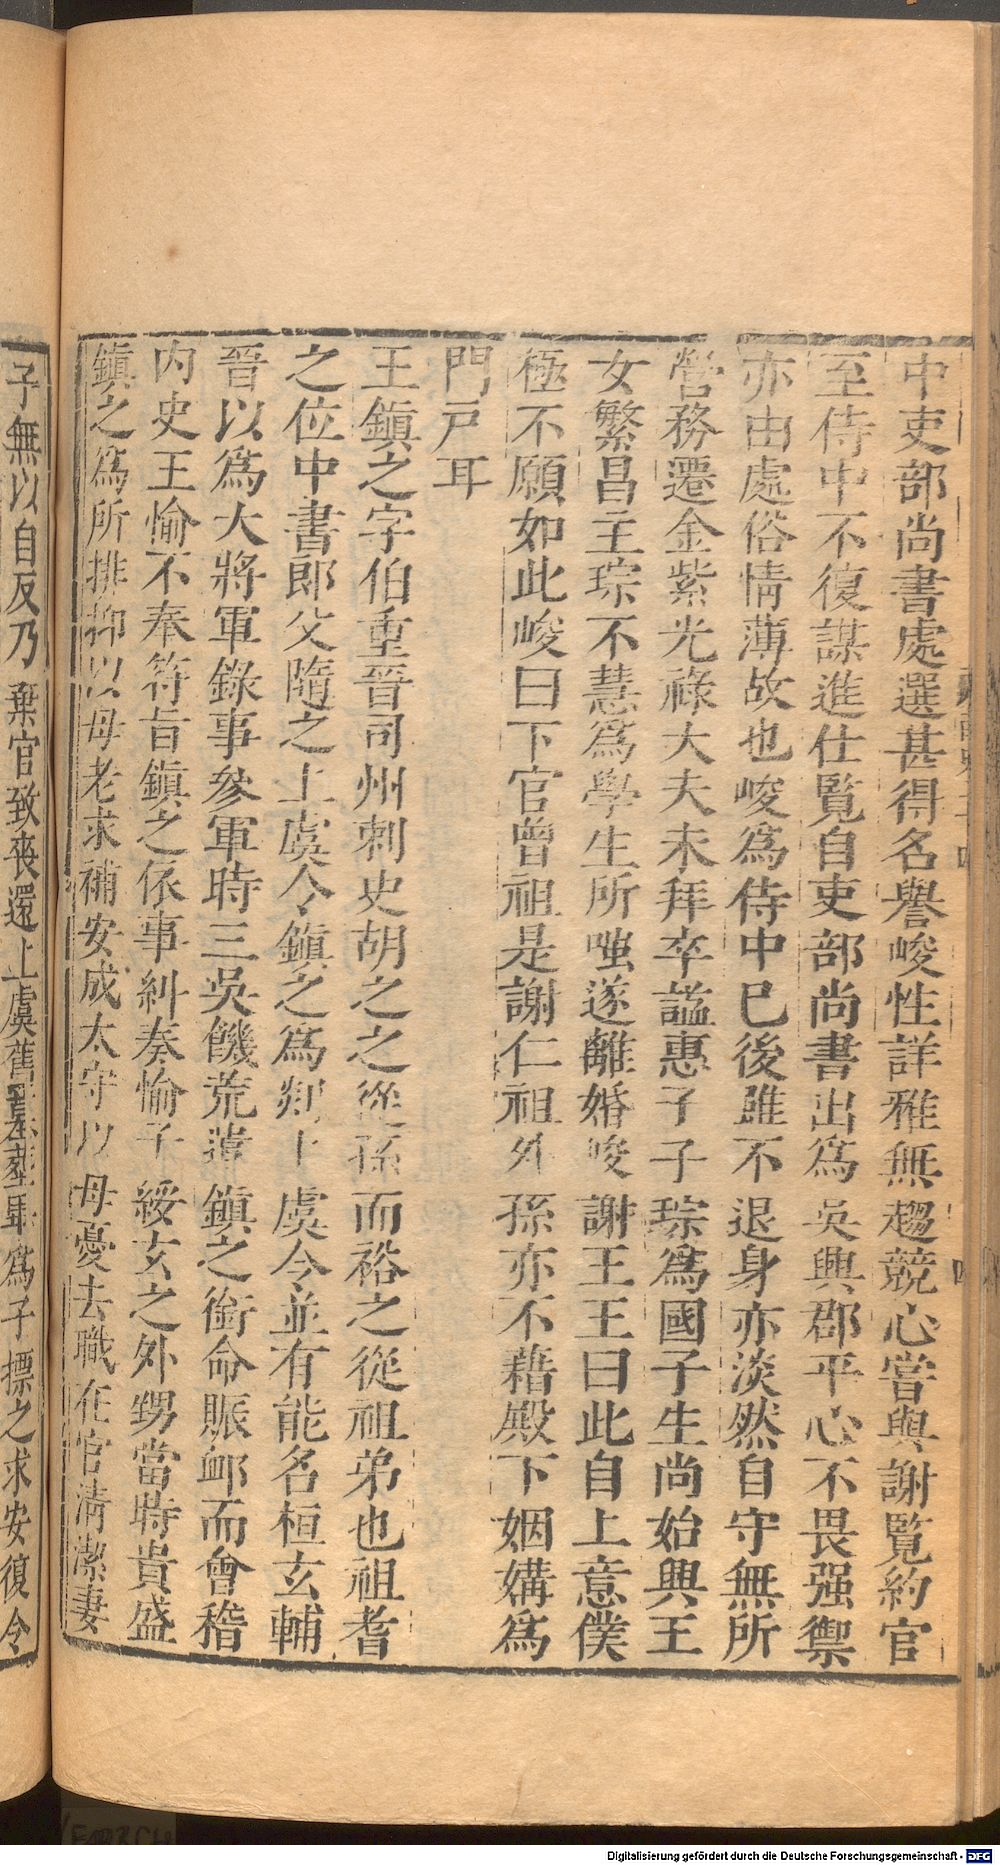 中吏部尚書處選甚得名譽峻性詳雅無趨競心嘗與謝覽約官
至侍中不復謀進仕覽自吏部尚書出爲吳興郡平心不畏强禦
亦由處俗情薄故也峻爲侍中已後雖不退身亦淡然自守無所
營務遷金紫光祿大夫未拜卒謚惠子子琮爲國子生尚始興王
女繁昌主琮不慧爲學生所嗤遂離婚峻謝王王曰此自上意僕
極不願如此峻曰下官曾祖是謝仁祖外孫亦不藉殿下姻媾爲
門戸耳
王鎮之字伯重晉司州刺史胡之之從孫而裕之從祖弟也祖耆
之位中書郎父隨之上虞令鎮之爲剡上虞令並有能名桓玄輔
晉以爲大將軍錄事參軍時三吳饑荒遣鎮之銜命賑卹而會稽
内史王愉不奉符旨鎮之依事糾奏愉子綏玄之外甥當時貴盛
鎮之爲所排抑以母老求補安成太守以母憂去職在官清潔妻
子無以自反乃棄官致喪還上虞舊墓葬畢爲子摽之求安復令
Digitalisierung gefördert durch die Deutsche Forschungsgemeinschaft - DFG